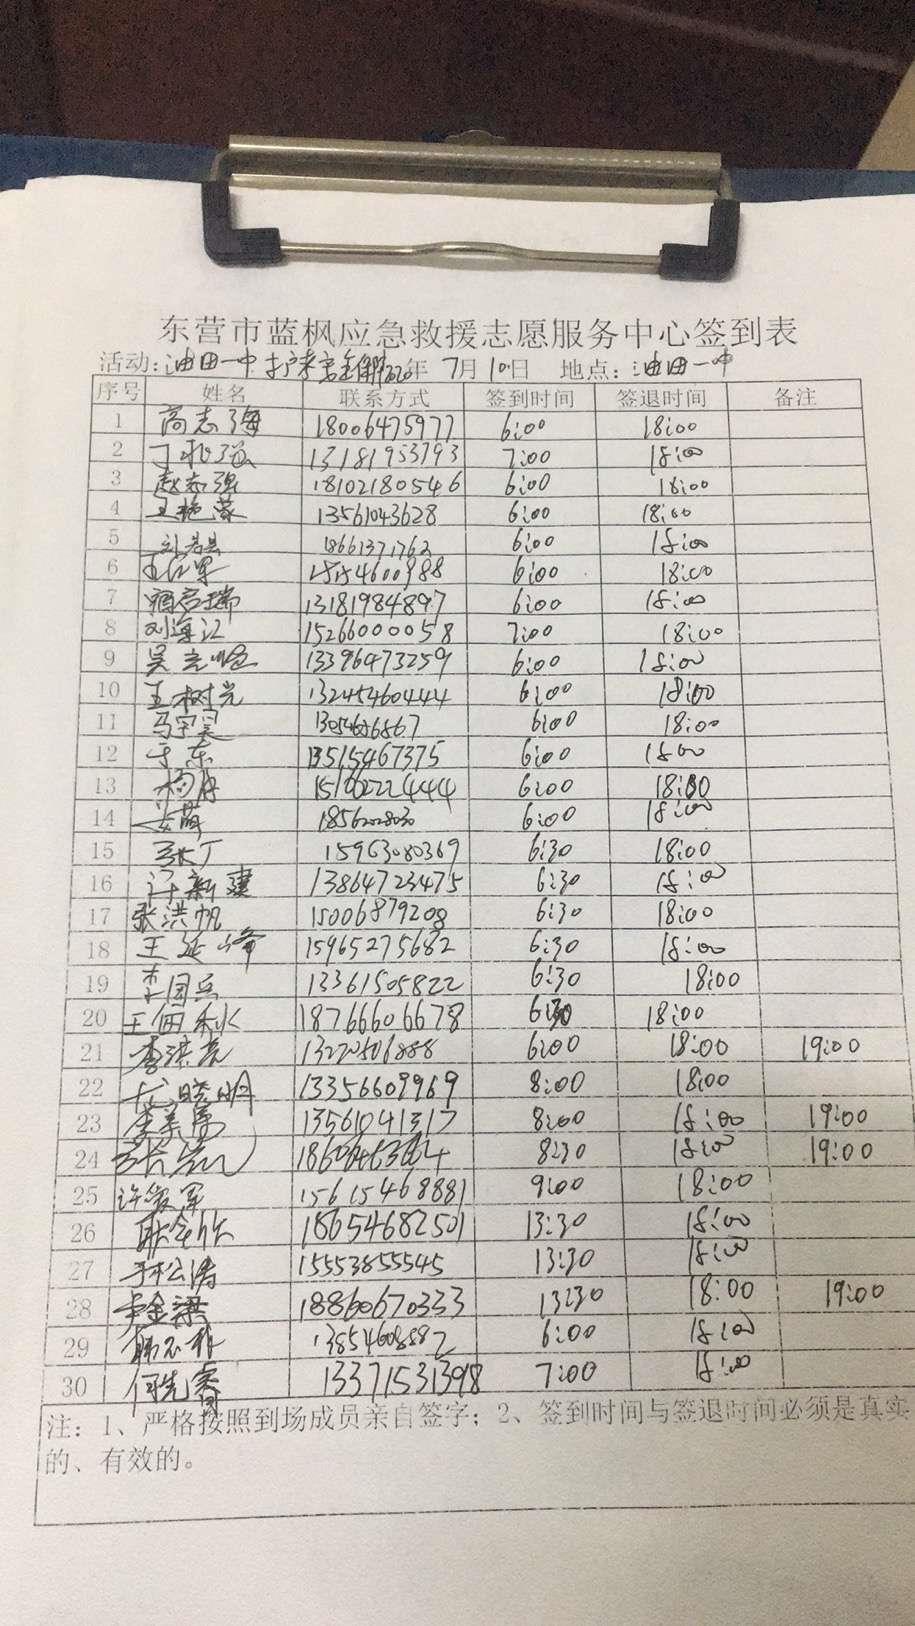 东营市蓝枫应急救援志愿服务中心签到表
活动:油田一中 2020年 7月10日 地点:油田一中
序号 姓名 联系方式 签到时间 签退时间 备注
1 高志强 18006475977 6:00 18:00
2 13181953793 7:00 18:00
3 赵志强 18102180546 6:00 18:00
4 王艳蒙 13561043628 6:00 18:00
5 18661371762 6:00 18:00
6 6:00 18:00
7 13181984897 6:00 18:00
8 刘海江 15266000058 7:00 18:00
9 13396473259 6:00 18:00
10 王树光 13245460444 6:00 18:00
11 马宇昊 6:00 18:00
12 于东 13515467375 6:00 18:00
13 杨丹 6:00 18:00
14 6:00 18:00
15 张丁 15963080369 6:30 18:00
16 许新建 13864723475 6:30 18:00
17 张洪帆 15006879208 6:30 18:00
18 王延峰 15965275682 6:30 18:00
19 李国兵 13361505822 6:30 18:00
20 王佃秋 18766606678 6:30 18:00
21 李洪亮 6:00 18:00 19:00
22 尤晓明 13356609969 8:00 18:00
23 13561041317 8:00 18:00 19:00
24 8:30 18:00 19:00
25 15615468881 9:00 18:00
26 18654682501 13:30 18:00
27 于松涛 15553855545 13:30 18:00
28 18860670333 13:30 18:00 19:00
29 6:00 18:00
30 13371531398 7:00 18:00
注:1、严格按照到场成员亲自签字;2、签到时间与签退时间必须是真实
的、有效的。